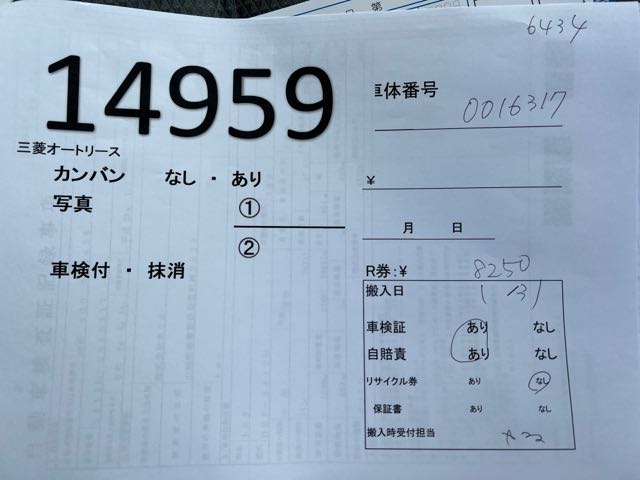 6434
14959
車体番号 0016317
三菱オートリース
カンバン なし ・ あり
¥
写真 ①
月 日
②
車検付 ・ 抹消
R券:¥ 8250
搬入日 1/31
車検証 あり なし
自賠責 あり なし
リサイクル券 あり なし
保証書 あり なし
搬入時受付担当